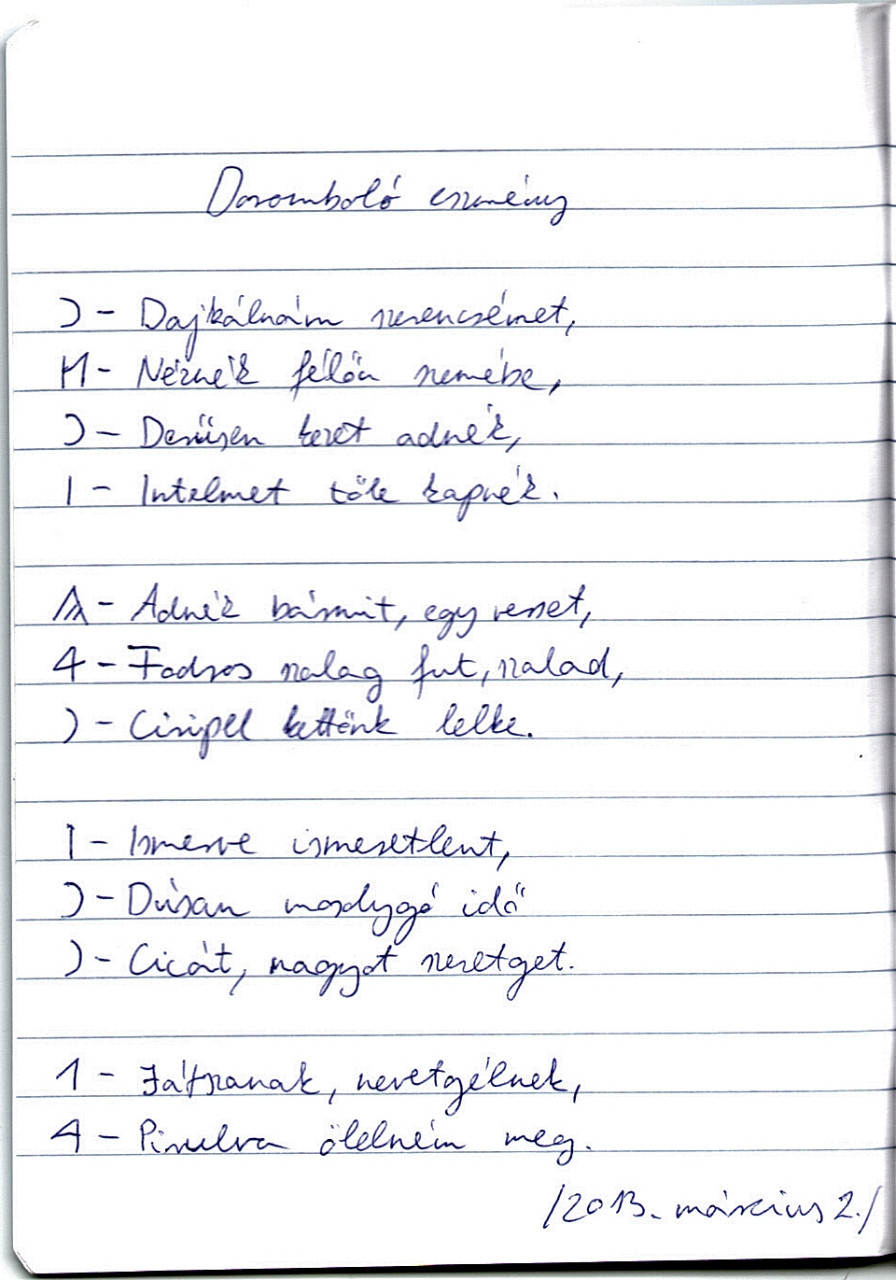 Doromboló esemény
Ɔ - Dajkálnám szerencsémet,
M - Néznék félőn szemébe,
Ɔ - Derűsen kezet adnék,
I - Intelmet tőle kapnék.
A - Adnék bármit, egy verset,
4 - Fodros szalag fut, szalad,
) - Ciripel kettőnk lelke.
1 - Ismerve ismeretlent,
Ɔ - Dúsan mosolygó idő
) - Cicát, nagyot szeretget.
1 - Játszanak, nevetgélnek,
4 - Pirulva ölelném meg.
/2013. március 2./